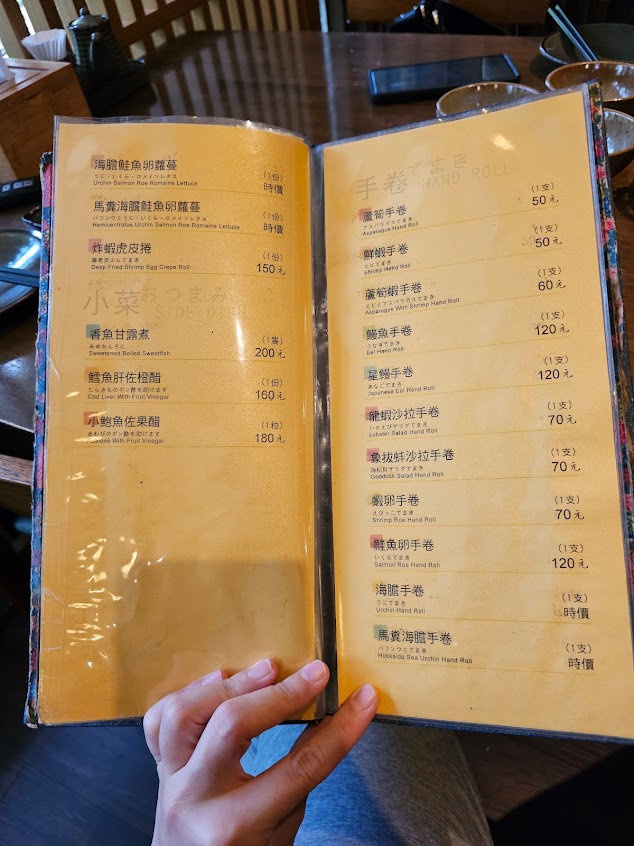 海膽鮭魚卵蘿蔓
うに・いくら・ロメインレタス
Urchin Salmon Roe Romaine Lettuce
(1份)
時價
馬糞海膽鮭魚卵蘿蔓
バフンウニうに・いくら・ロメイソレタス
Hemicentrotus Urchin Salmon Roe Romaine Lettuce
(1份)
時價
炸蝦虎皮捲
Deep Fried Shrimp Egg Crepe Roll
(1份)
150元
小菜 おつまみ
SIDE DISH
香魚甘露煮
あゆかんろに
Sweetened Boiled Sweetfish
(1隻)
200元
鱈魚肝佐橙醋
たらきものポン酢を助けます
Cod Liver With Fruit Vinegar
(1份)
160元
小鮑魚佐果醋
あわびのポン酢を助けます
Abalone With Fruit Vinegar
(1粒)
180元
手卷 てまき
HAND ROLL
蘆筍手卷
アスパラガスてまき
Asparagus Hand Roll
(1支)
50元
鮮蝦手卷
エビてまき
Shrimp Hand Roll
(1支)
50元
蘆筍蝦手卷
エビとアスパラガスてまき
Asparagus With Shrimp Hand Roll
(1支)
60元
鰻魚手卷
うなぎてまき
Eel Hand Roll
(1支)
120元
星鰻手卷
あなごてまき
Japanese Eel Hand Roll
(1支)
120元
龍蝦沙拉手卷
いせえびサラダてまき
Lobster Salad Hand Roll
(1支)
70元
象拔蚌沙拉手卷
Geoduck Salad Hand Roll
(1支)
70元
蝦卵手卷
えびっこてまき
Shrimp Roe Hand Roll
(1支)
70元
鮭魚卵手卷
いくらてまき
Salmon Roe Hand Roll
(1支)
120元
海膽手卷
うにてまき
Urchin Hand Roll
(1支)
時價
馬糞海膽手卷
バフンウニてまき
Hokkaido Sea Urchin Hand Roll
(1支)
時價